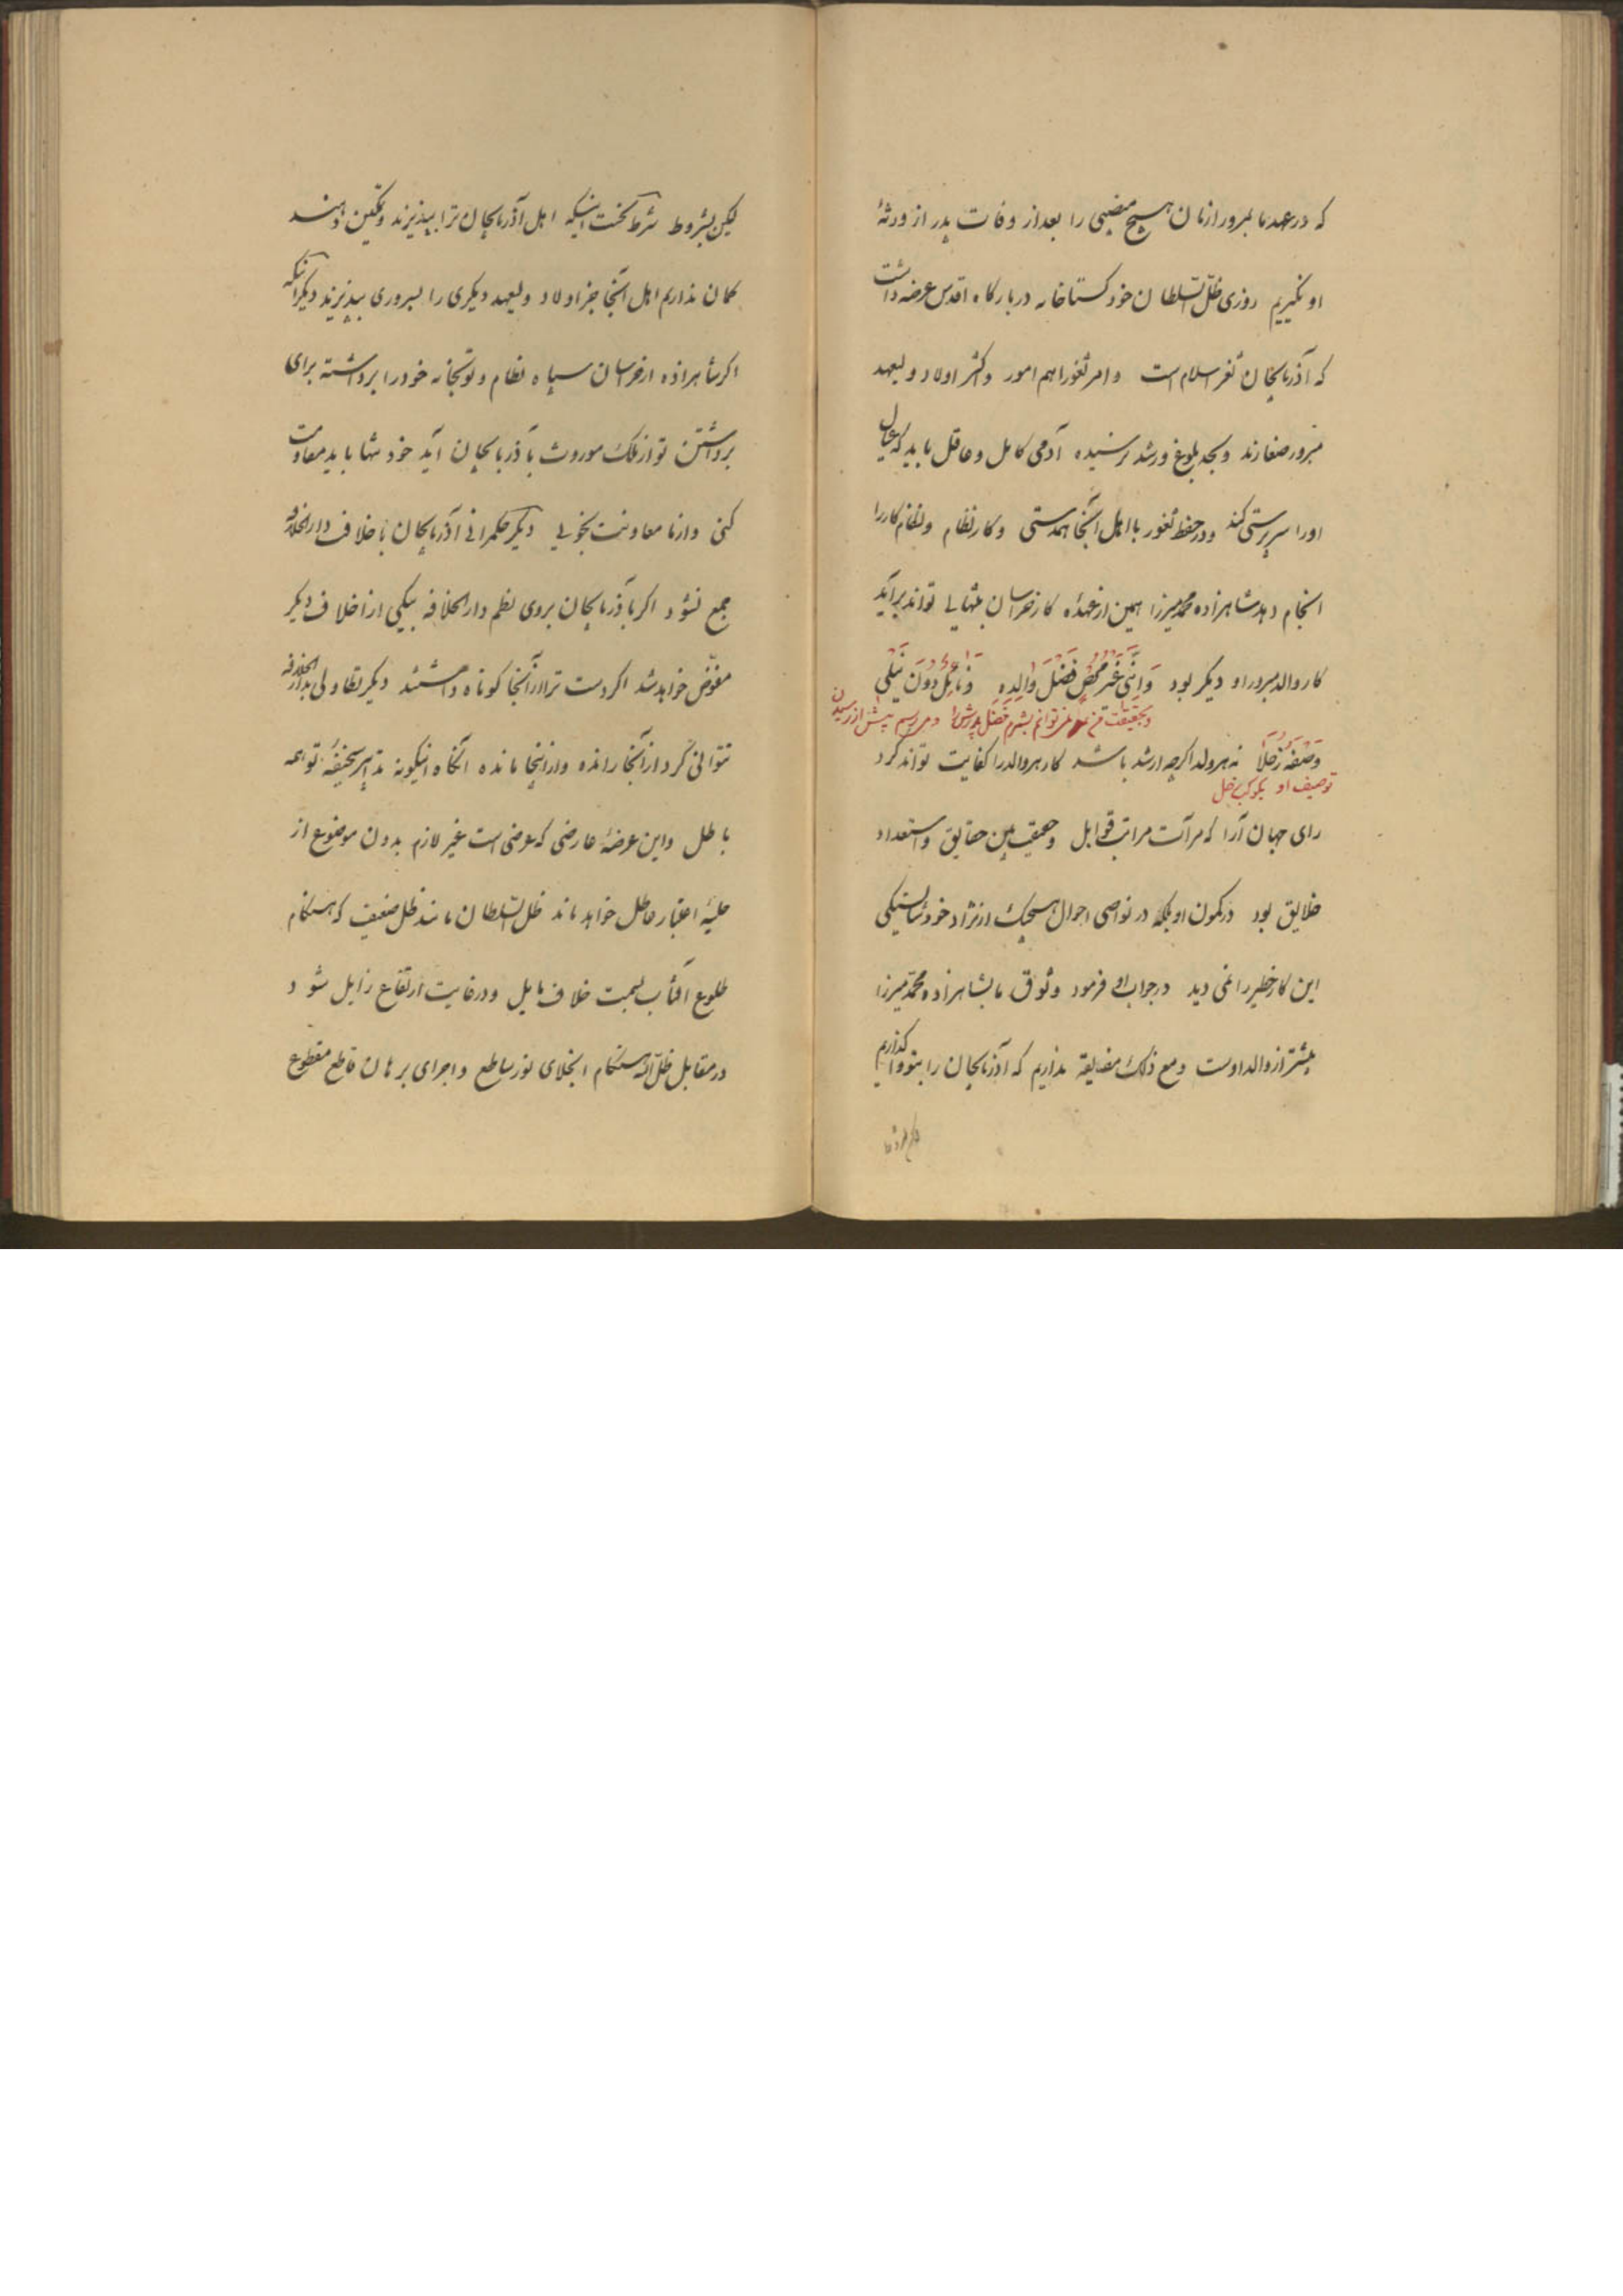 که در عهد ما بمرور ازمان هیچ منصبی را بعد از وفات پدر از ورثهٔ
او نگیریم روزی ظلّ السّلطان خود کستاخانه دربارکاه اقدس عرضه داشت
که آذربایجان ثغر اسلام است و امر ثغور اهم امور و اکثر اولاد ولیعهد
مبرور صغارند و بحد بلوغ و رشد نرسیده آدمی کامل و عاقل باید که عیال
او را سرپرستی کند و در حفظ ثغور با اهل آنجا همدستی و کار نظام و نظام کار را
انجام دهد شاهزاده محمد میرزا همین از عهدهٔ کار خراسان بتنهایی تواند برآید
کار والد مبرور او دیکر بود وَاِنَّنی غَیرُ مُحصٍ فَضلَ والِدِهِ وَنائِلٌ دُونَ نَیلی
و بحقیقت من نمی توانم بشمرم فضل پدرش را و می رسم پیش از رسیدن
وَصفَهُ زُحَلاً نه هر ولد اکرچه ارشد باشد کار هر والد را کفایت تواند کرد
توصیف او بکوکب زحل
رای جهان آرا که مرآت مراتب قوابل و حقیقت بین حقایق و استعداد
خلایق بود در کمون او بلکه در نواصی احوال هیچیک از نژاد خود شایستیکی
این کار خطیر را نمی دید در جواب او فرمود وثوق ما بشاهزاده محمد میرزا
بیشتر از والد اوست و مع ذلک مضایقه نداریم که آذربایجان را بتو واکذاریم
لیکن بشروط شرط نخست اینکه اهل آذربایجان ترا بپذیرند و تمکین دهند
کمان نداریم اهل آنجا جز اولاد ولیعهد دیکری را بسروری بپذیرند دیکر آنکه
اکر شاهزاده از خراسان سپاه نظام و توپخانه خود را برداشته برای
برداشتن تو از ملک موروث بآذربایجان آید خود تنها باید مقاومت
کنی و از ما معاونت نجویی دیکر حکمرانی آذربایجان با خلافت دارالخلافه
جمع نشود اکر بآذربایجان بروی نظم دارالخلافه بیکی از اخلاف دیکر
مفوّض خواهد شد اکر دست ترا از آنجا کوتاه داشتند دیکر تطاولی بدارالخلافه
نتوانی کرد از آنجا رانده و از اینجا مانده آنکاه اینکونه تدابیر سخیفهٔ تو همه
باطل و این عرضهٔ عارضی که عرضی است غیر لازم بدون موضوع از
حلیهٔ اعتبار عاطل خواهد ماند ظل السّلطان مانند ظل ضعیف که هنکام
طلوع آفتاب بسمت خلاف مایل و در غایت ارتفاع زایل شود
در مقابل ظلّ اله هنکام انجلای نور ساطع و اجرای برهان قاطع مقطوع